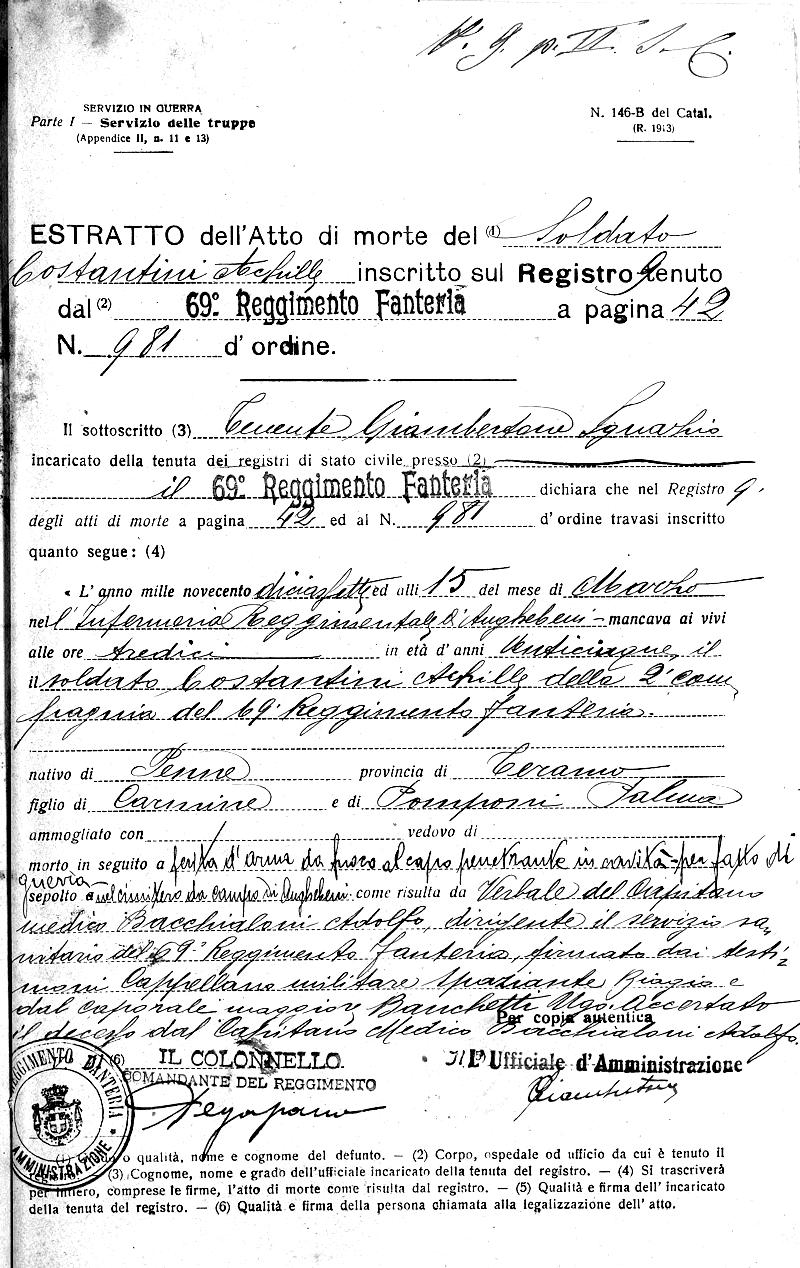 V. 9. p. II. S. C.
SERVIZIO IN GUERRA
Parte I — Servizio delle truppe
(Appendice II, n. 11 e 13)
N. 146-B del Catal.
(R. 1913)
ESTRATTO dell'Atto di morte del (1) Soldato
Costantini Achille inscritto sul Registro 9 tenuto
dal (2) 69° Reggimento Fanteria a pagina 42
N. 981 d'ordine.
Il sottoscritto (3) Tenente Giambertone Ignazio
incaricato della tenuta dei registri di stato civile presso (2)
il 69° Reggimento Fanteria dichiara che nel Registro 9.
degli atti di morte a pagina 42 ed al N. 981 d'ordine travasi inscritto
quanto segue: (4)
« L'anno mille novecento diciasette ed alli 15 del mese di Marzo
nell'Infermeria Reggimentale d'Anghebeni - mancava ai vivi
alle ore tredici in età d'anni venticinque, il
il soldato Costantini Achille della 2ª com
pagnia del 69° Reggimento fanteria.
nativo di Penne provincia di Teramo
figlio di Carmine e di Pomponi Palma
ammogliato con vedovo di
morto in seguito a ferita d'arma da fuoco al capo penetrante in cavità - per fatto di
guerra
sepolto a nel cimitero da campo di Anghebeni come risulta da Verbale del Capitano
medico Bacchialoni Adolfo, dirigente il servizio sa-
nitario del 69° Reggimento fanteria, firmato dai testi-
moni Cappellano militare Spaziante Biagio e
dal caporale maggiore Banchetti Ugo. Accertato
Per copia autentica
il decesso dal Capitano Medico Bacchialoni Adolfo.
(6) IL COLONNELLO
COMANDANTE DEL REGGIMENTO
L'Ufficiale d'Amministrazione
REGGIMENTO FANTERIA
AMMINISTRAZIONE
(1) o qualità, nome e cognome del defunto. — (2) Corpo, ospedale od ufficio da cui è tenuto il
registro. — (3) Cognome, nome e grado dell'ufficiale incaricato della tenuta del registro. — (4) Si trascriverà
per intiero, comprese le firme, l'atto di morte come risulta dal registro. — (5) Qualità e firma dell'incaricato
della tenuta del registro. — (6) Qualità e firma della persona chiamata alla legalizzazione dell'atto.